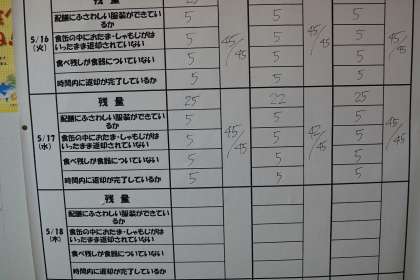 残量 25
配膳にふさわしい服装ができているか 5 5 5
5/16(火) 食缶の中におたま・しゃもじがはいったまま返却されていない 5 5 5
45/45 45/45 45/45
食べ残しが食器についていない 5 5 5
時間内に返却が完了しているか 5 5 5
残量 25 22 25
配膳にふさわしい服装ができているか 5 5 5
5/17(水) 食缶の中におたま・しゃもじがはいったまま返却されていない 5 5 5
45/45 42/45 45/45
食べ残しが食器についていない 5 5 5
時間内に返却が完了しているか 5 5 5
残量
配膳にふさわしい服装ができているか
5/18(木) 食缶の中におたま・しゃもじがはいったまま返却されていない
食べ残しが食器についていない
時間内に返却が完了しているか